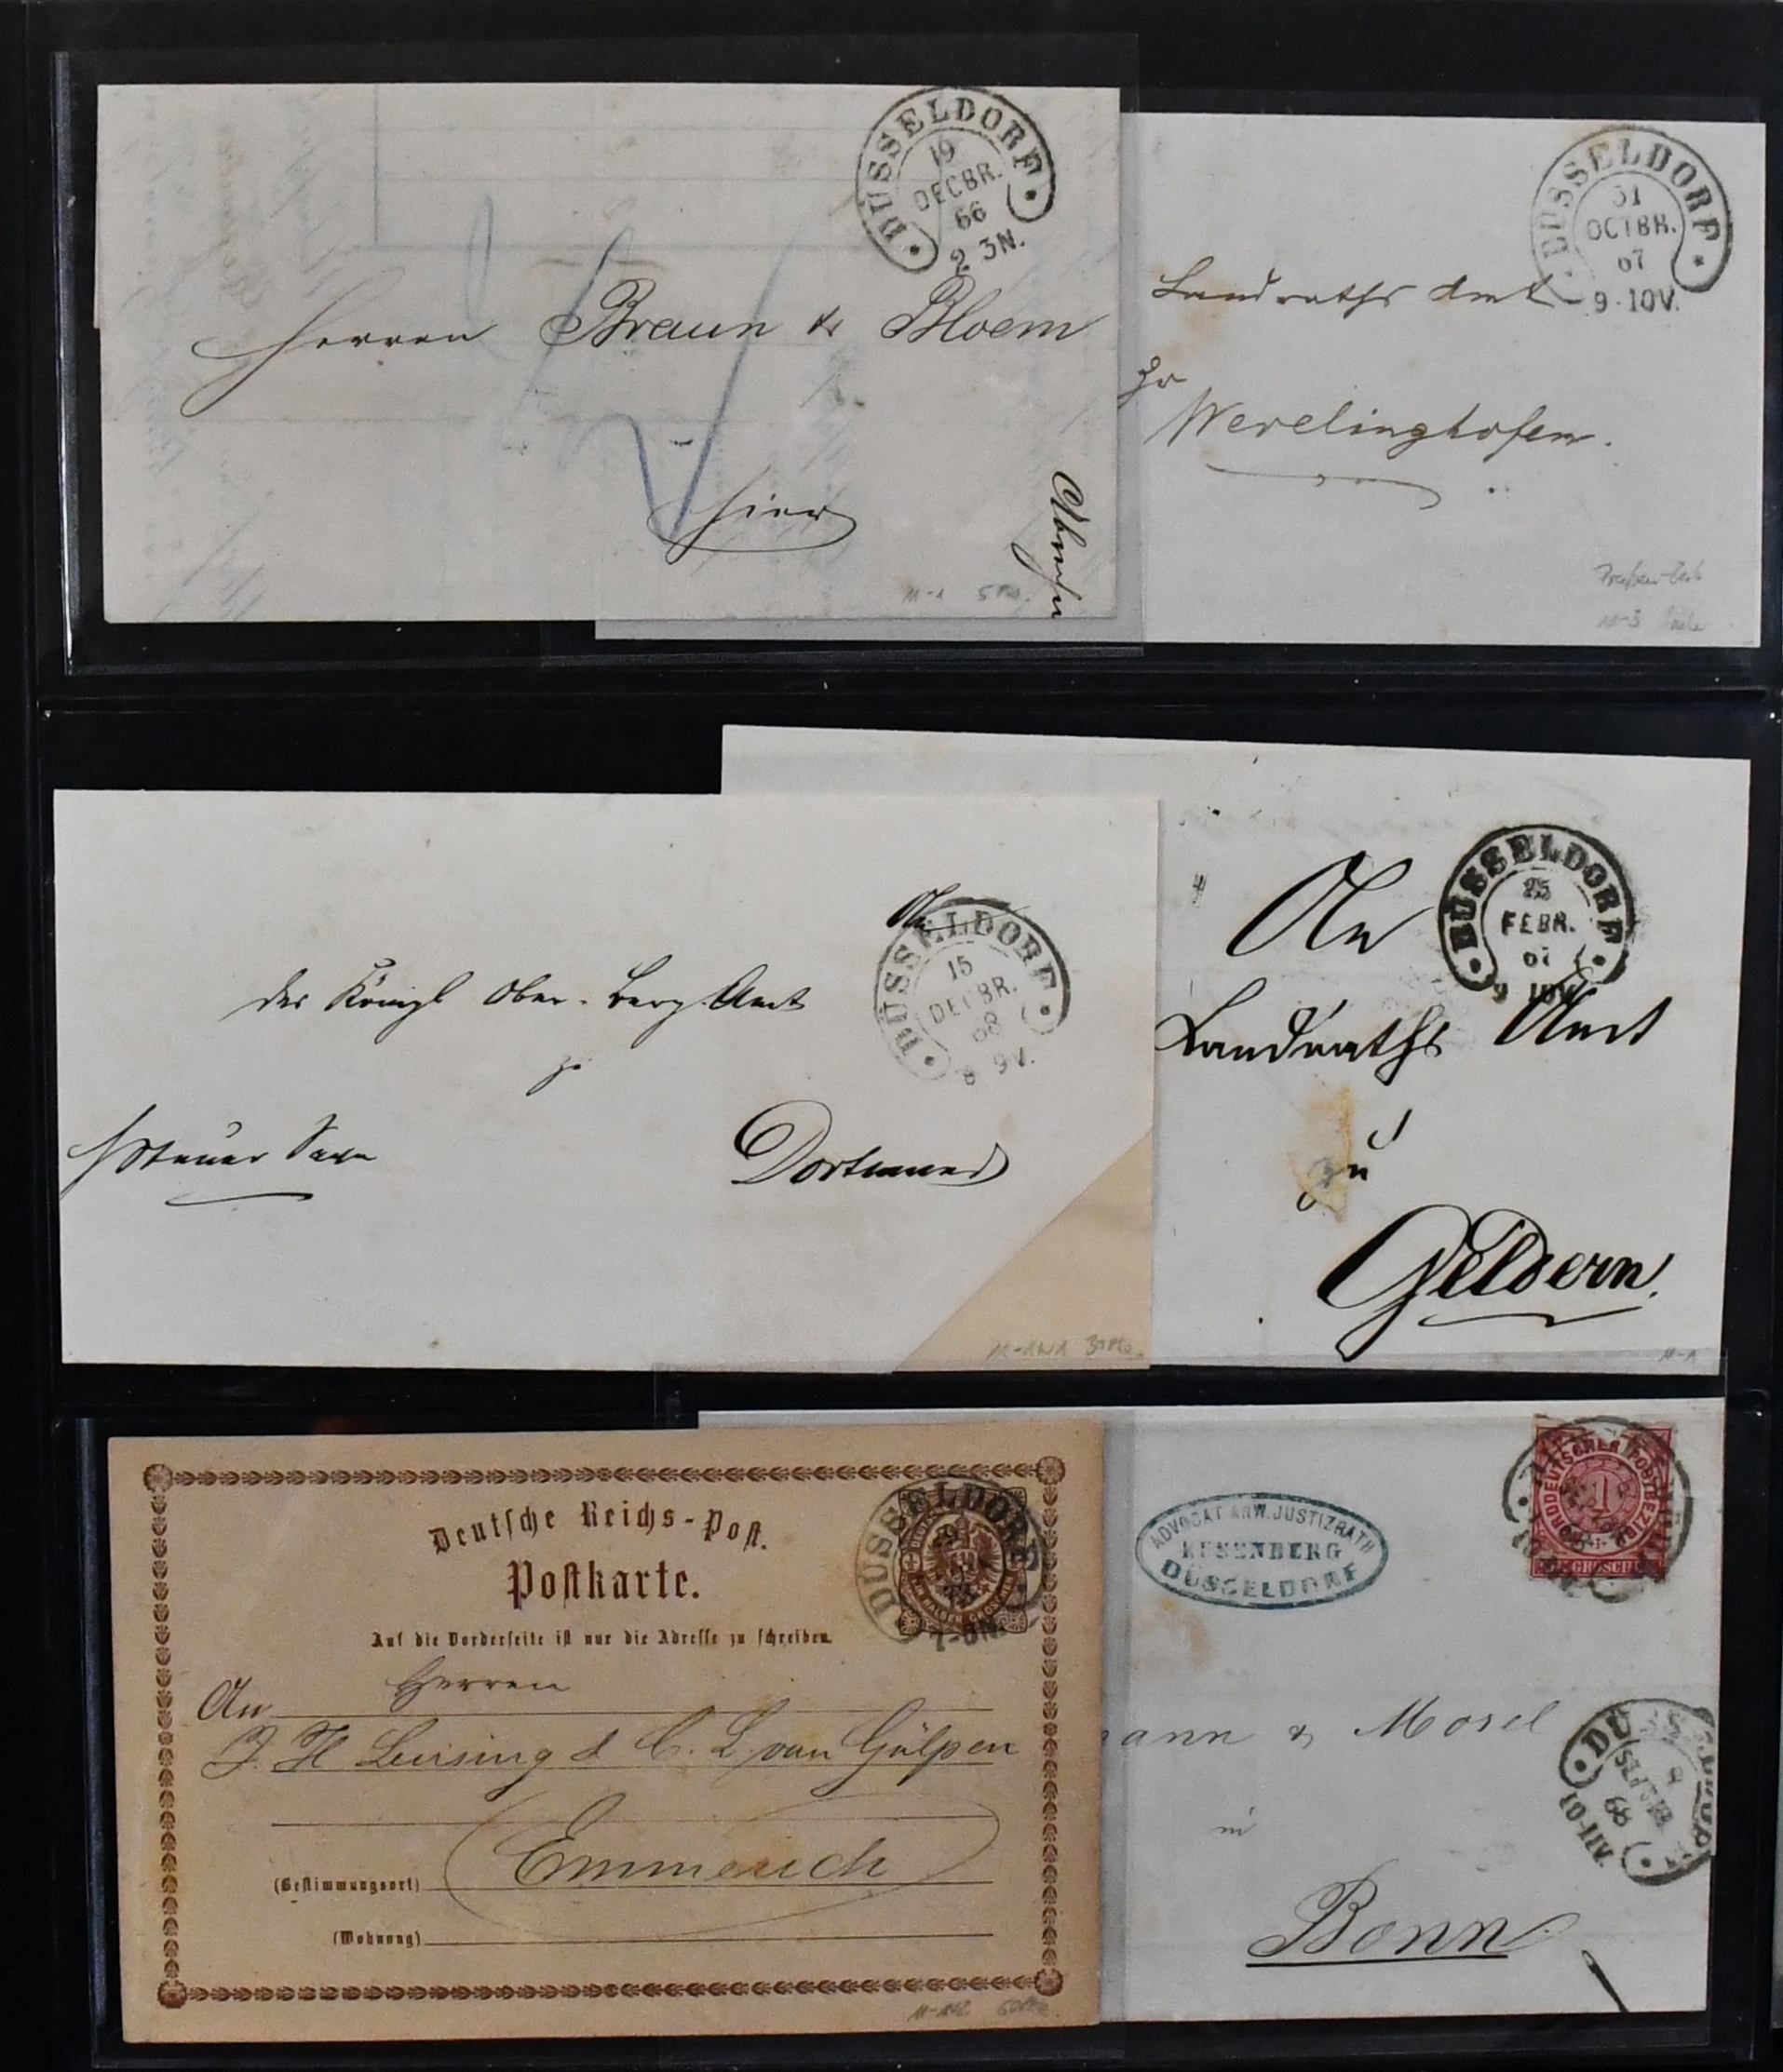 DÜSSELDORF
19
DECBR.
66
2 3N.
Herren Braun & Bloem
hier
M-1
DÜSSELDORF
31
OCTBR.
67
9-10V.
Landraths Amt
zu
Wevelinghofen.
An
DÜSSELDORF
15
DECBR.
68
8 9V.
das Königl Ober-Berg-Amt
zu
Dortmund
DÜSSELDORF
25
FEBR.
67
9 10V.
An
Landraths Amt
zu
Geldern.
M-1
Deutsche Reichs-Post.
Postkarte.
Auf die Vorderseite ist nur die Adresse zu schreiben.
DÜSSELDORF
7-8N.
An Herren
J. H. Leising & C. L. van Gülpen
(Bestimmungsort) Emmerich
(Wohnung)
NORDDEUTSCHER POSTBEZIRK
1
GROSCHEN
ADVOCAT ANW. JUSTIZRATH
EUSENBERG
DÜSSELDORF
ann & Mosel
in
Bonn
DÜSSELDORF
8
SEPTBR
68